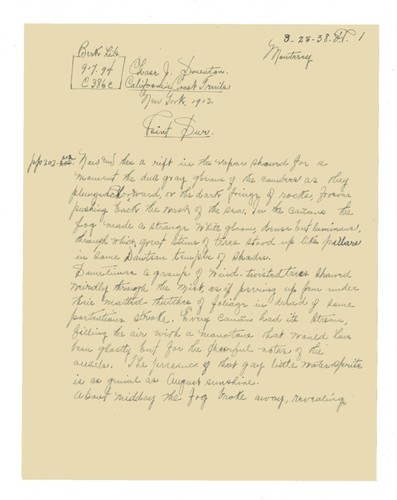 3-25-38. 1
Monterey
Berk. Lib.
917.94
C386c
Chase J. Smeaton.
California Coast Trails
New York 1913.
Point Sur.
Now and then a rift in the vapor showed for a
moment the dull gray gleam of the combers as they
plunged shoreward, or the dark fringe of rocks, forever
pushing back the mock of the sea. In the cañons the
fog made a strange white gloom, dense but luminous,
through which great stems of trees stood up like pillars
in some Dantean temple of shades.
Sometimes a group of wind-twisted trees showed
weirdly through the mist, as if peering up from under
their matted thatches of foliage in dread of some
portentous stroke. Every cañon had its stream,
filling the air with a monotone that would have
been ghostly but for the cheerful notes of the
ouzels. The presence of that gay little water-sprite
is as genial as August sunshine.
About midday the fog broke away, revealing